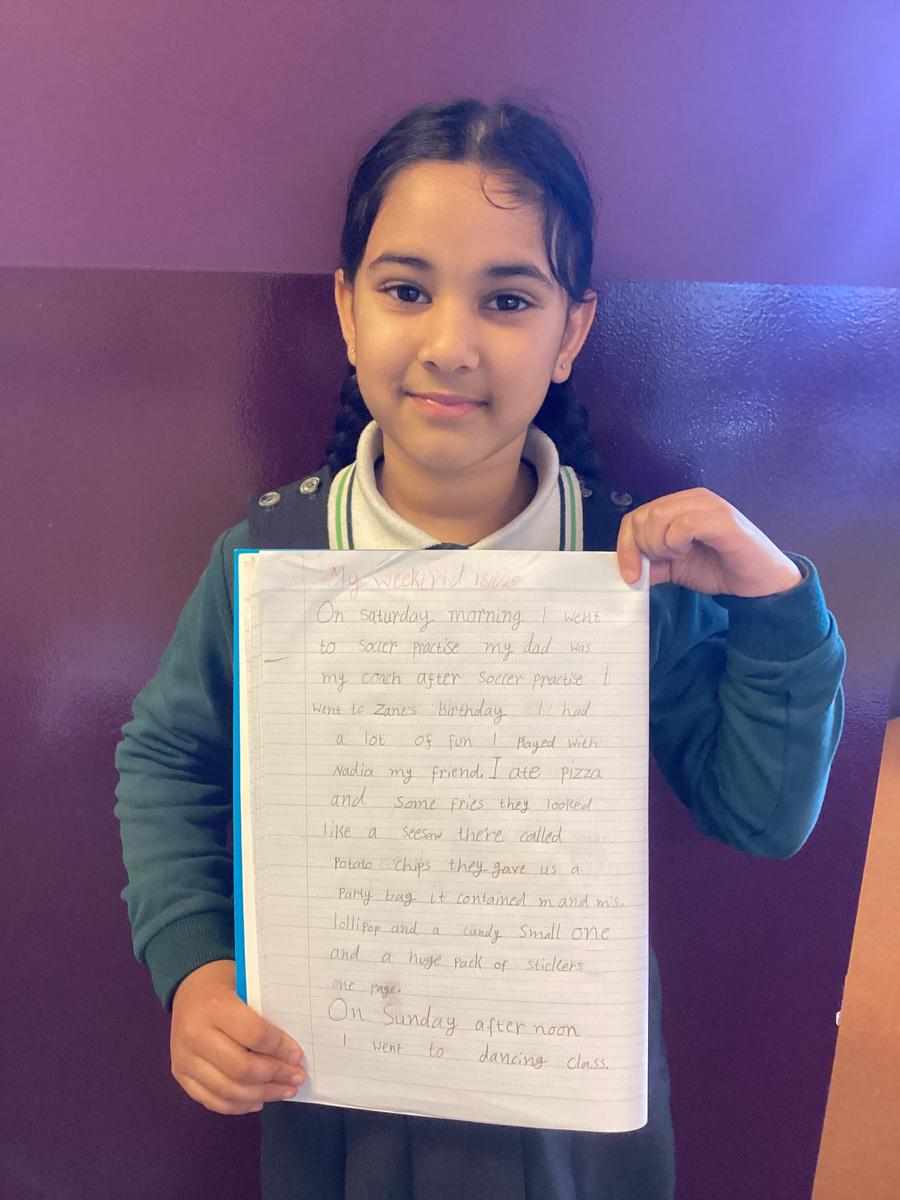 My weekend
On saturday morning I went
to soccer practise my dad was
my coach after soccer practise I
went to Zane's birthday I had
a lot of fun I played with
Nadia my friend. I ate pizza
and some fries they looked
like a seesaw there called
potato chips they gave us a
party bag it contained m and m's,
lollipop and a candy small one
and a huge pack of stickers
one page.
On Sunday after noon
I went to dancing class.